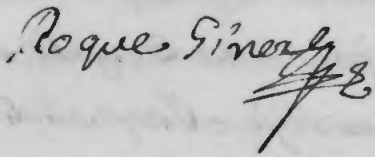 Roque Ginerz